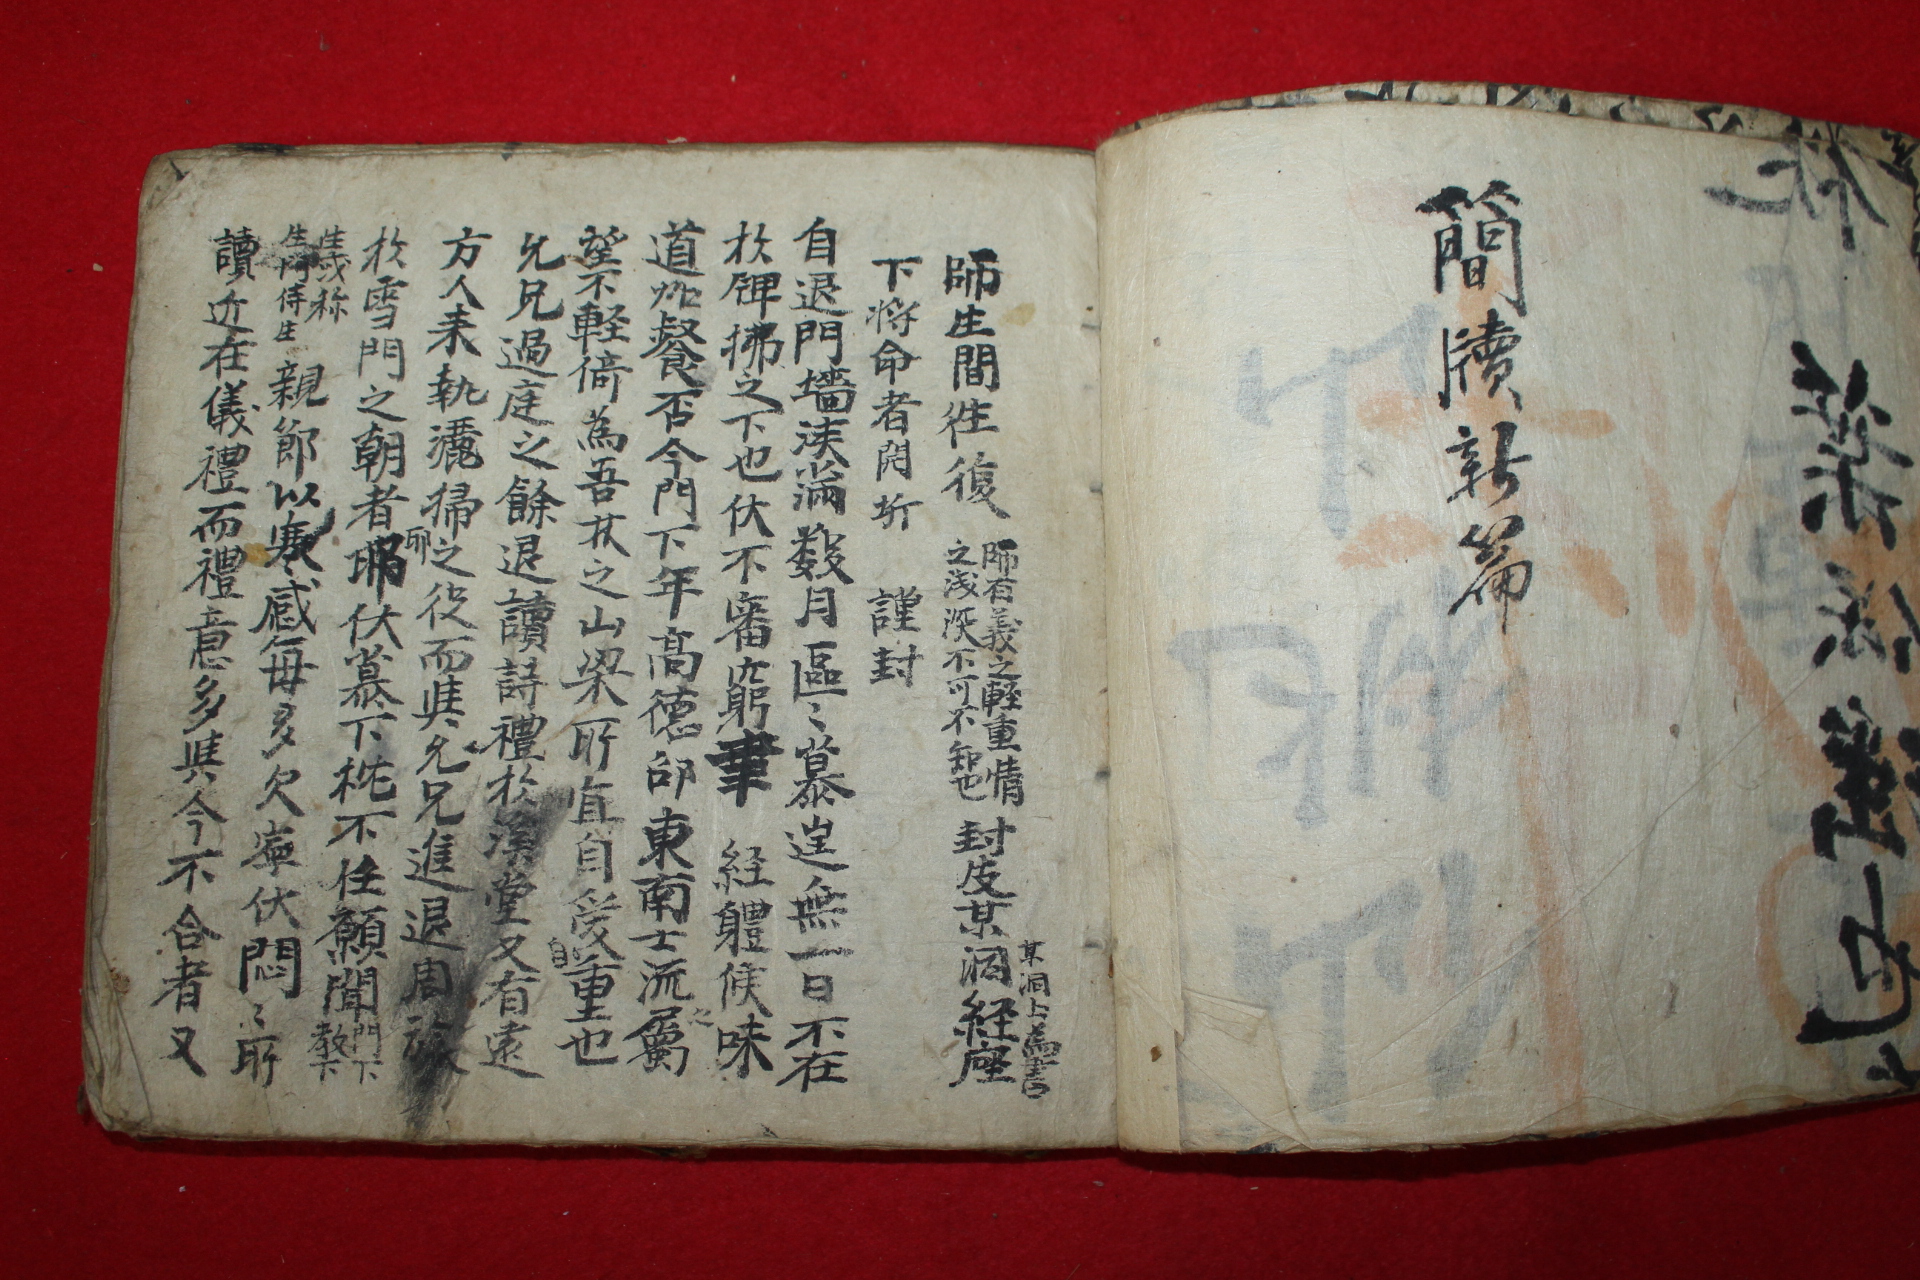 簡牘新篇
師生間徃復
師有義之輕重情
之浅深不可不知也
封皮某洞経座
某洞上為書
下將命者開坼 謹封
自退門墻淡滿数月區〻慕 無一日不在
於 拂之下也伏不審 経體候味
道 餐否今門下年高德卲東南士流之屬
望不軽 為吾林之山梁所宜自愛重也
允兄過庭之餘退讀詩禮於溪堂又有遠
方人来執灑掃之役而與允兄進退周旋
於雪門之朝者耶伏慕下忱不任願聞
門下
教下
生或称
侍生
親節以寒感每多欠寧伏悶〻所
讀近在儀禮而禮意多與今不合者又